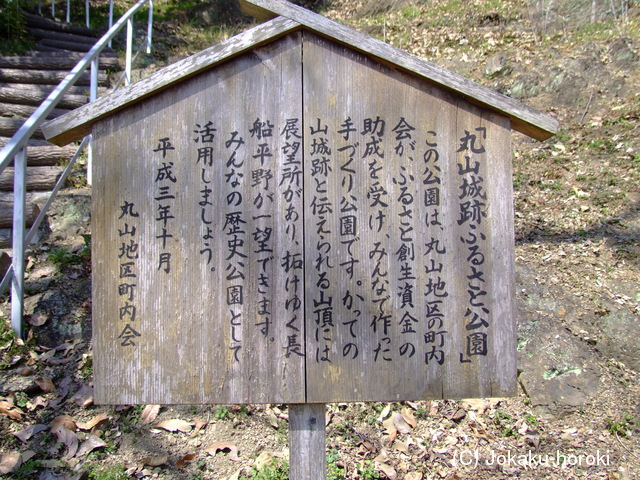 「丸山城跡ふるさと公園」
この公園は、丸山地区の町内
会が、ふるさと創生資金の
助成を受け、みんなで作った
手づくり公園です。かっての
山城跡と伝えられる山頂には
展望所があり、拓けゆく長
船平野が一望できます。
みんなの歴史公園として
活用しましょう。
平成三年十月
丸山地区町内会
(C) Jokaku-horoki